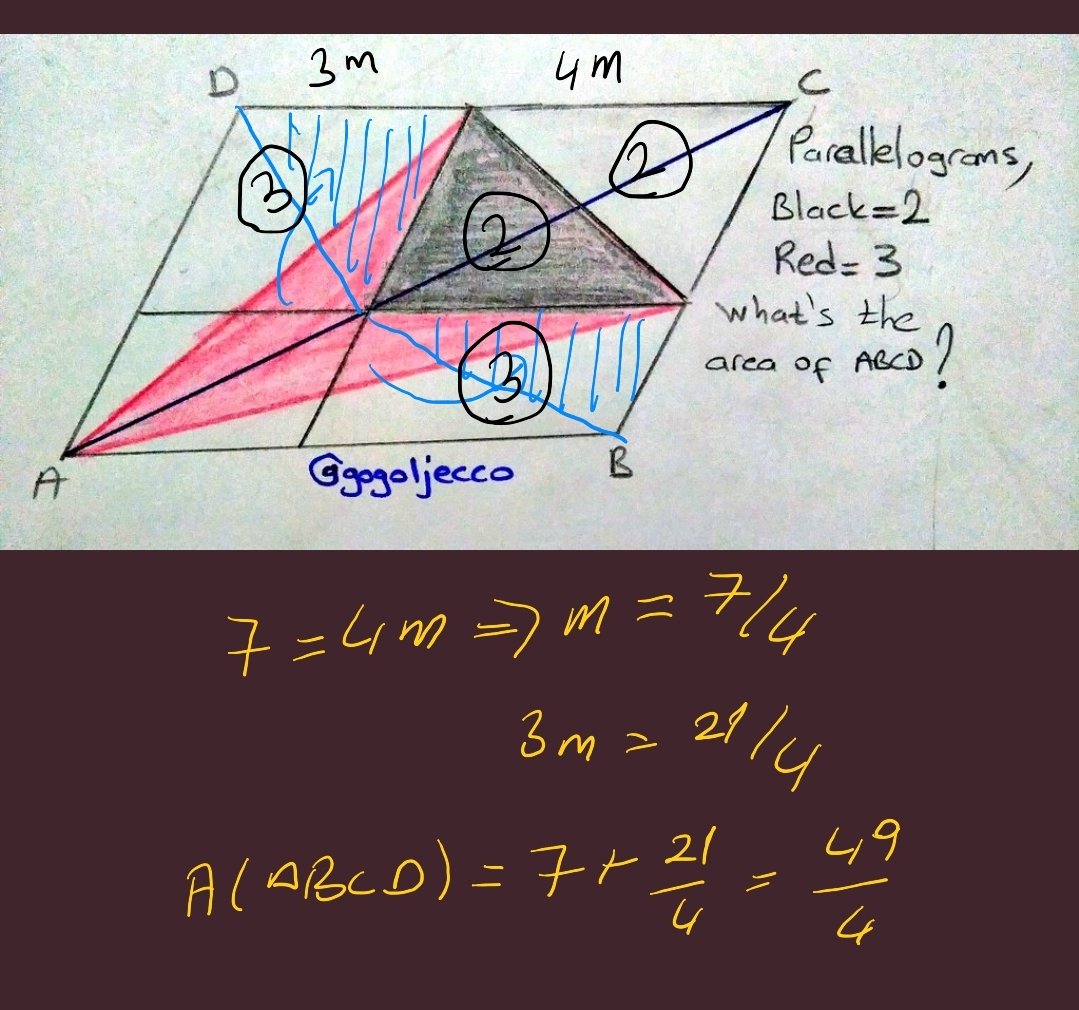 D 3m 4m C
Parallelograms,
2
3
Black=2
2
Red= 3
What's the
3
area of ABCD?
A
@gogoljecco
B
7 = 4m => m = 7/4
3m = 21/4
A(ABCD) = 7 + 21/4 = 49/4